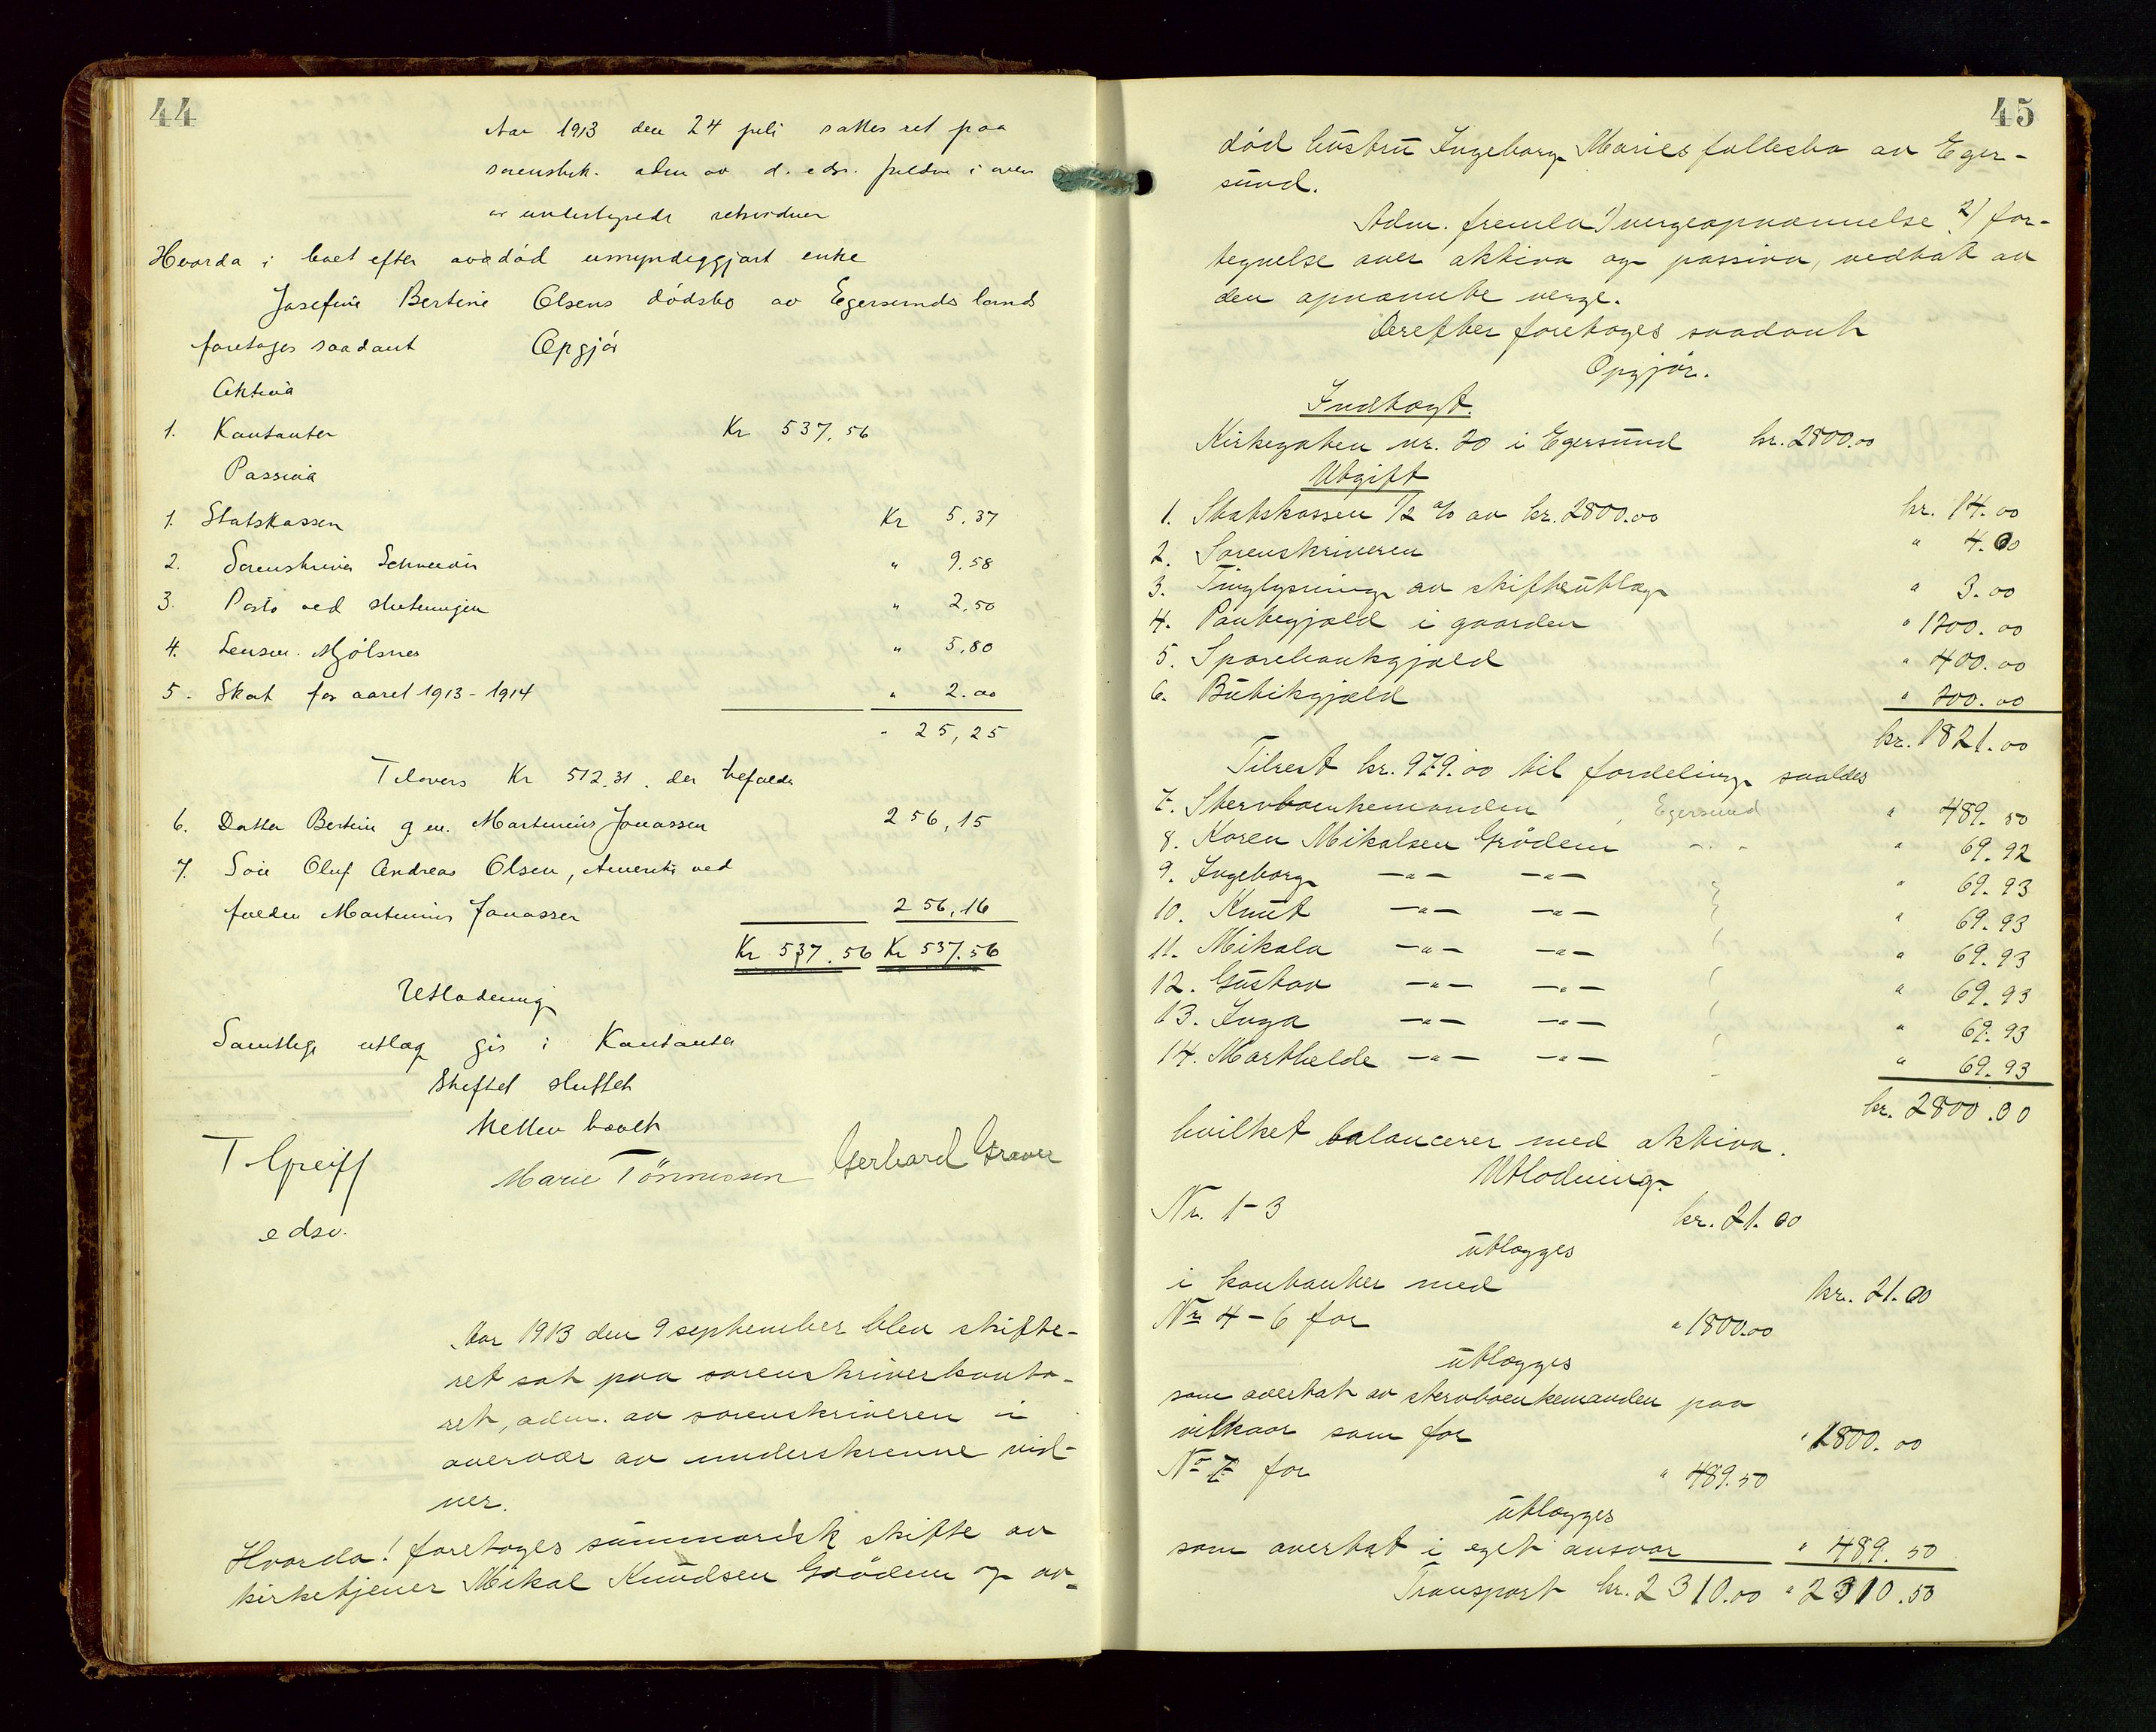 44
Aar 1913 den 24 juli sattes ret paa
sorenskrk. adm av d. edsv. fuldm i over
av undertegnede retsvidner
Hvorda i boet efter avdød umyndiggjort enke
Josefine Bertine Olsens dødsbo av Egersunds land
foretages saadant Opgjør
Aktiva
1. Kontanter Kr 537,56
Passiva
1. Statskassen Kr 5.37
2. Sorenskriver Schneevin " 9.58
3. Porto ved slutningen " 2.50
4. Lensm. Mjølsnes " 5.80
5. Skat for aaret 1913-1914 " 2.00
" 25,25
Tilovers Kr 512.31. der tilfalder
6. Datter Bertine g m. Martinius Jonassen 256,15
7. Søn Oluf Andreas Olsen, Amerika ved
fuldm Martinius Jonassen 256,16
Kr 537.56 Kr 537.56
Utlodning
Samtlige utlæg gis i Kontanter
Skiftet sluttet
Retten hævet
T Greiff Marie Tönnessen Gerhard Graver
edsv.
Aar 1913 den 9 september blev skifte-
ret sat paa sorenskriverkonto-
ret, adm. av sorenskriveren i
overvær av underskrevne vid-
ner.
Hvorda! foretages summarisk skifte av
kirketjener Mikal Knudsen Grödem og av-
45
död hustru Ingeborg Maries fællesbo av Eger-
sund.
Adm. fremla 1) vergeopnævnelse 2) for-
tegnelse over aktiva og passiva, vedtat av
den opnævnte verge.
Derefter foretages saadant
Opgjör.
Indtægt.
Kirkegaten nr. 20 i Egersund kr. 2800.00
Utgift
1. Statskassen 1/2 % av kr. 2800.00 kr. 14.00
2. Sorenskriveren " 4.00
3. Tinglysning av skifteutlæg " 3.00
4. Pantegjæld i gaarden " 1200.00
5. Sparebankgjæld " 400.00
6. Butikgjæld " 200.00
kr. 1821.00
Tilrest kr. 979.00 til fordeling saaledes
7. Stervboenkemanden , Egersund " 489.50
8. Karen Mikalsen Grödem -"- " 69.92
9. Ingeborg -"- -"- " 69.93
10. Knut -"- -"- " 69.93
11. Mikala -"- -"- " 69.93
12. Gustav -"- -"- " 69.93
13. Inga -"- -"- " 69.93
14. Marthilde -"- -"- " 69.93
kr. 2800.00
hvilket balancerer med aktiva.
Utlodning.
Nr. 1-3 kr. 21.00
utlægges
i kontanter med kr. 21.00
Nr 4-6 for " 1800.00
utlægges
som overtat av stervboenkemanden paa
vilkaar som for " 1800.00
No 7 for " 489.50
utlægges
som overtat i eget ansvar " 489.50
Transport kr. 2310.00 " 2310.50